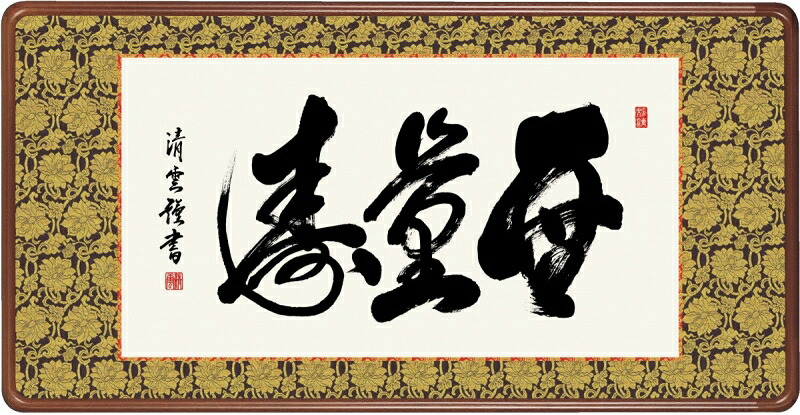 無量壽
清雲張書